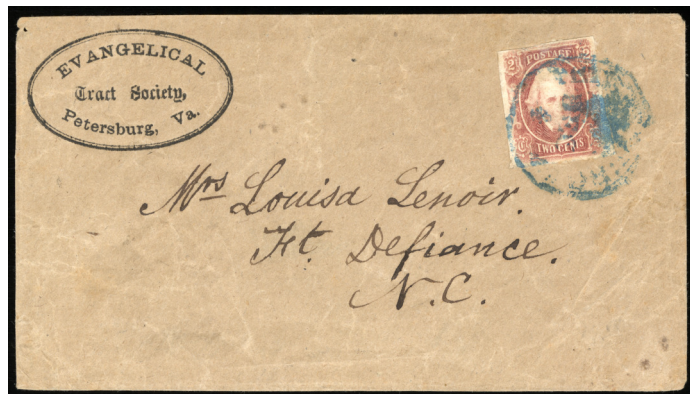 EVANGELICAL
Tract Society,
Petersburg, Va.
POSTAGE
TWO CENTS
Mrs Louisa Lenoir.
Ft. Defiance.
N.C.